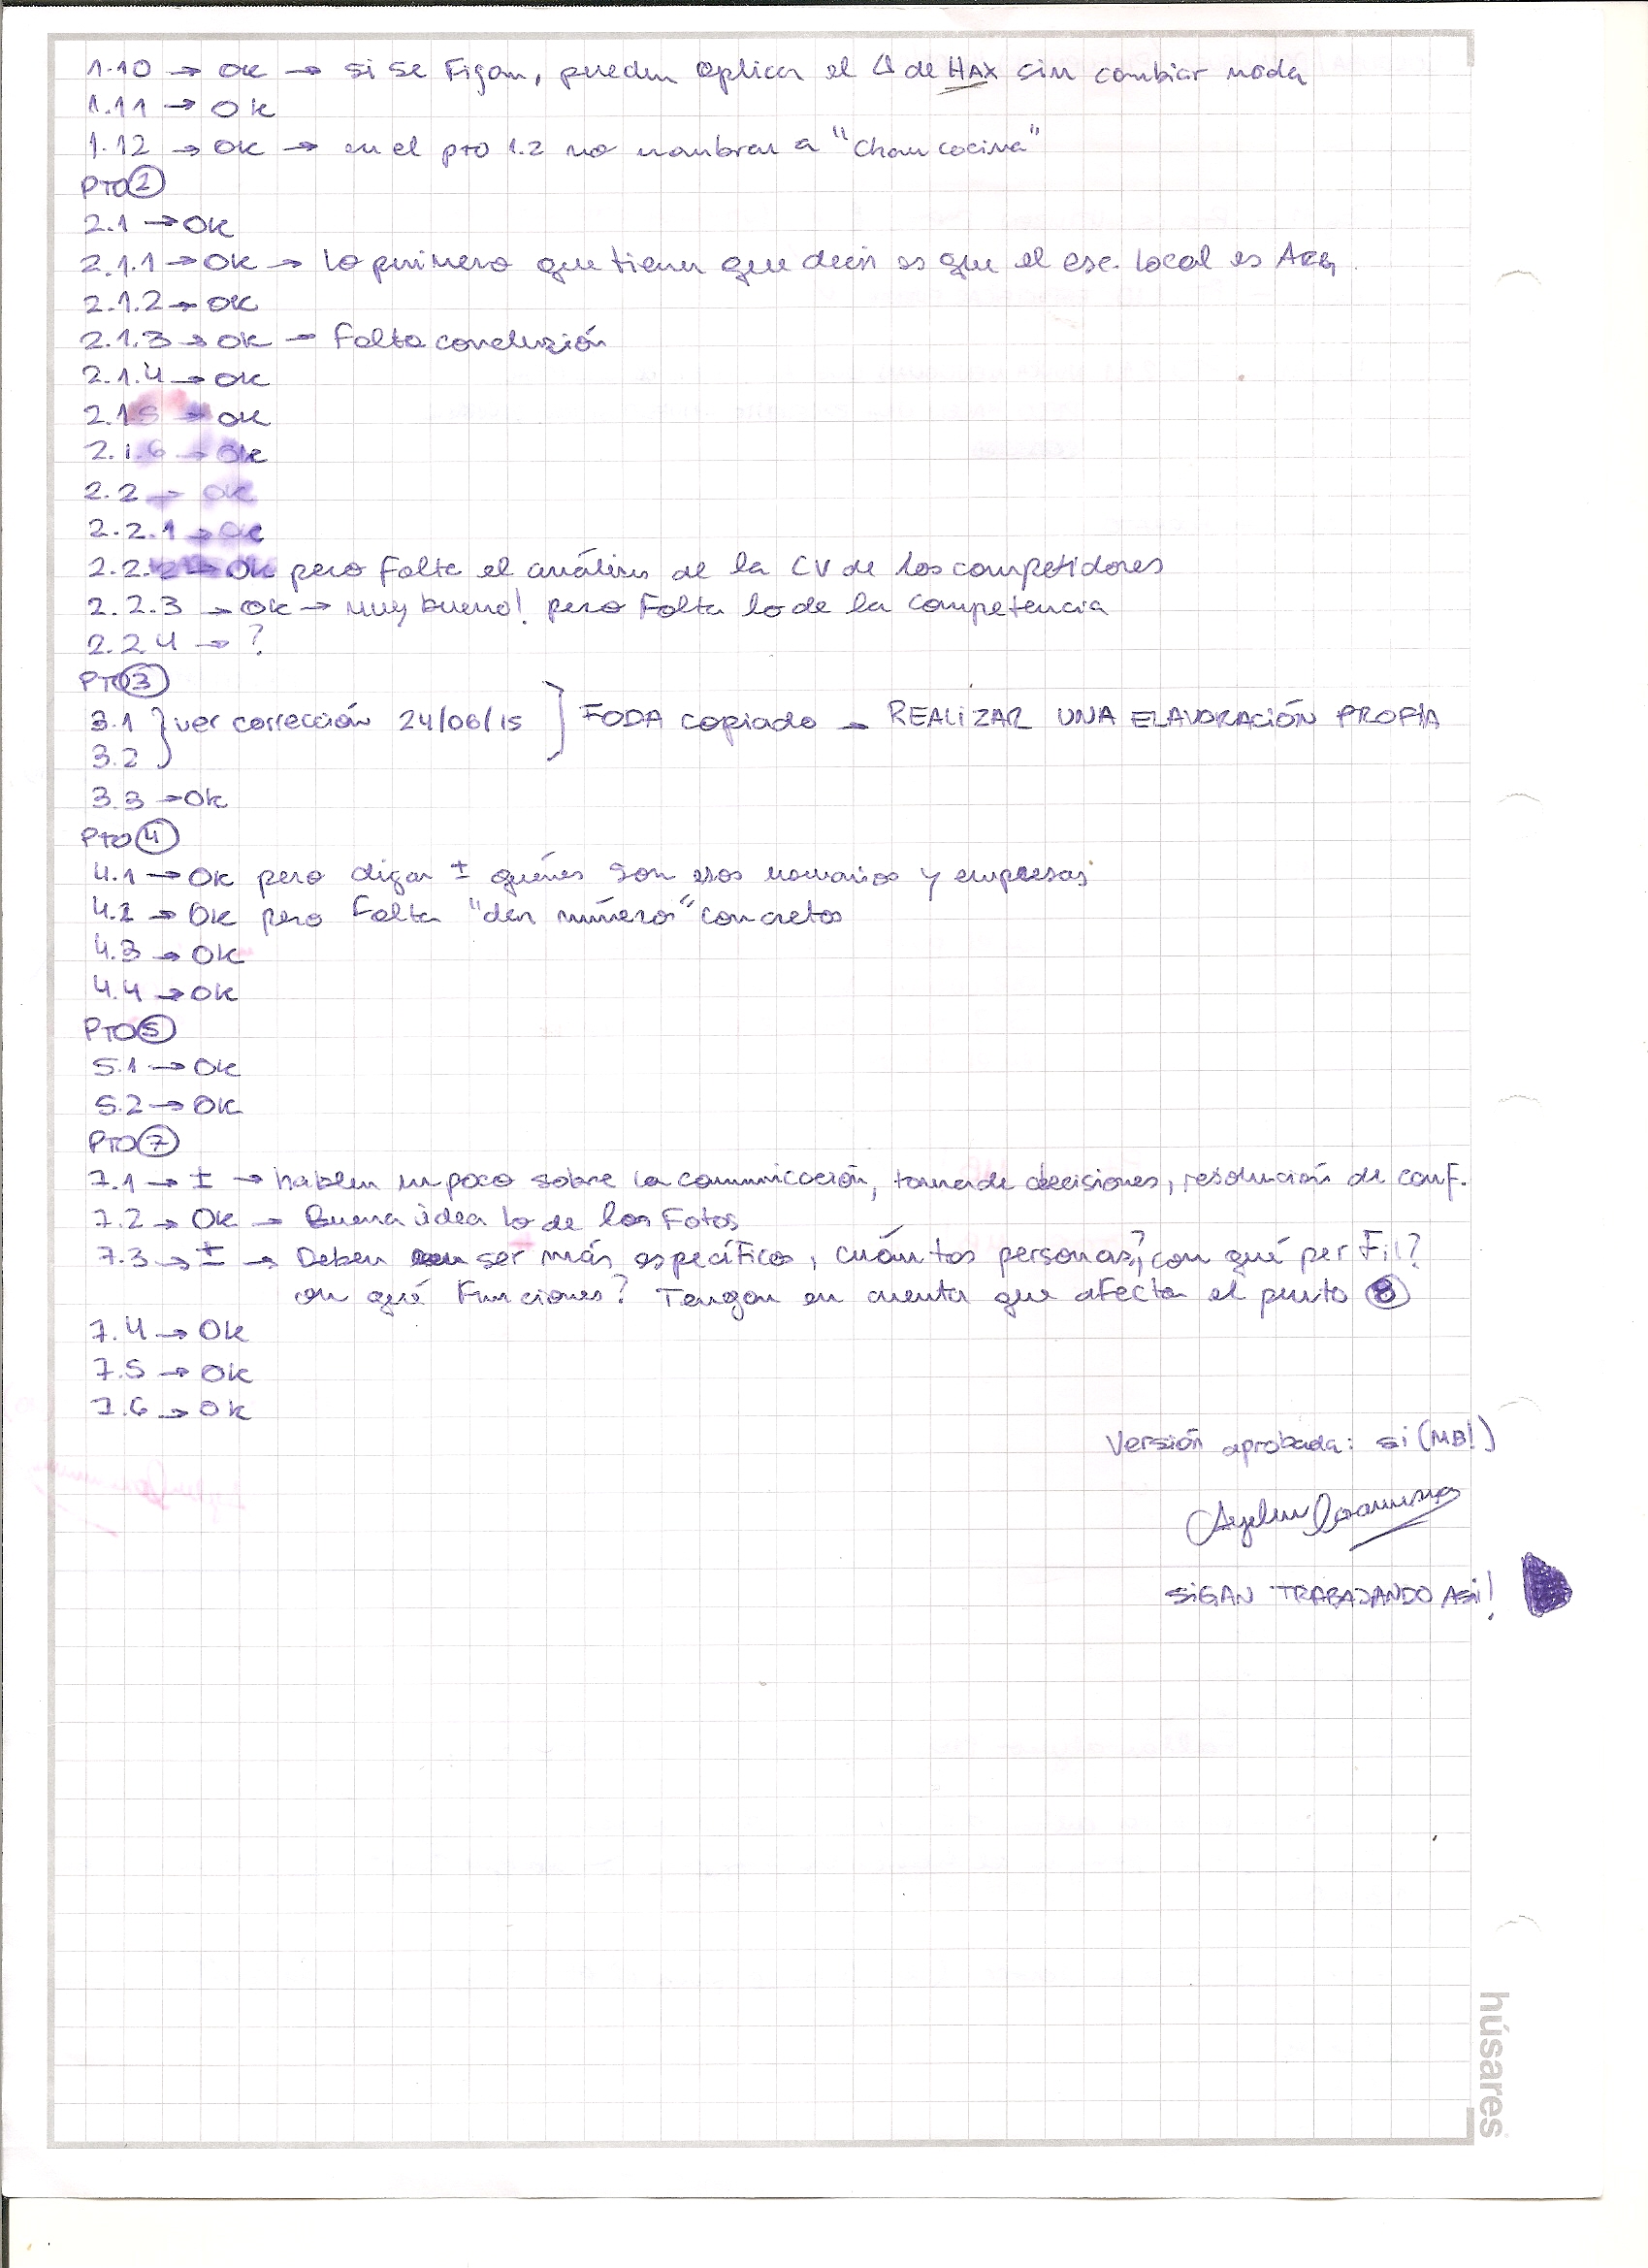 1.10 → OK → si se Fijan, pueden aplicar el Δ de HAX sin cambiar nada
1.11 → OK
1.12 → OK → en el pto 1.2 no nombran a "Chau cocina"
PTO 2
2.1 → OK
2.1.1 → OK → lo primero que tienen que decir es que el esc. local es ARG.
2.1.2 → OK
2.1.3 → OK → Falta conclusión
2.1.4 → OK
2.1.5 → OK
2.1.6 → OK
2.2 → OK
2.2.1 → OK
2.2.2 → OK pero falta el análisis de la CV de los competidores
2.2.3 → OK → muy bueno! pero Falta lo de la competencia
2.2.4 → ?
PTO 3
3.1 } ver corrección 24/06/15 } FODA copiado → REALIZAR UNA ELAVORACIÓN PROPIA
3.2
3.3 → OK
PTO 4
4.1 → OK pero digan ± quiénes son esos usuarios y empresas
4.2 → OK pero Falta "den números" concretos
4.3 → OK
4.4 → OK
PTO 5
5.1 → OK
5.2 → OK
PTO 7
7.1 → ± → hablen un poco sobre la comunicación, toma de decisiones, resolución de conf.
7.2 → OK → Buena idea lo de las Fotos
7.3 → ± → Deben ser más específicos, cuántas personas?, con qué perFil?
en qué Funciones? Tengan en cuenta que afecta el punto 8
7.4 → OK
7.5 → OK
7.6 → OK
Versión aprobada: si (MB!)
SIGAN TRABAJANDO ASI!
húsares